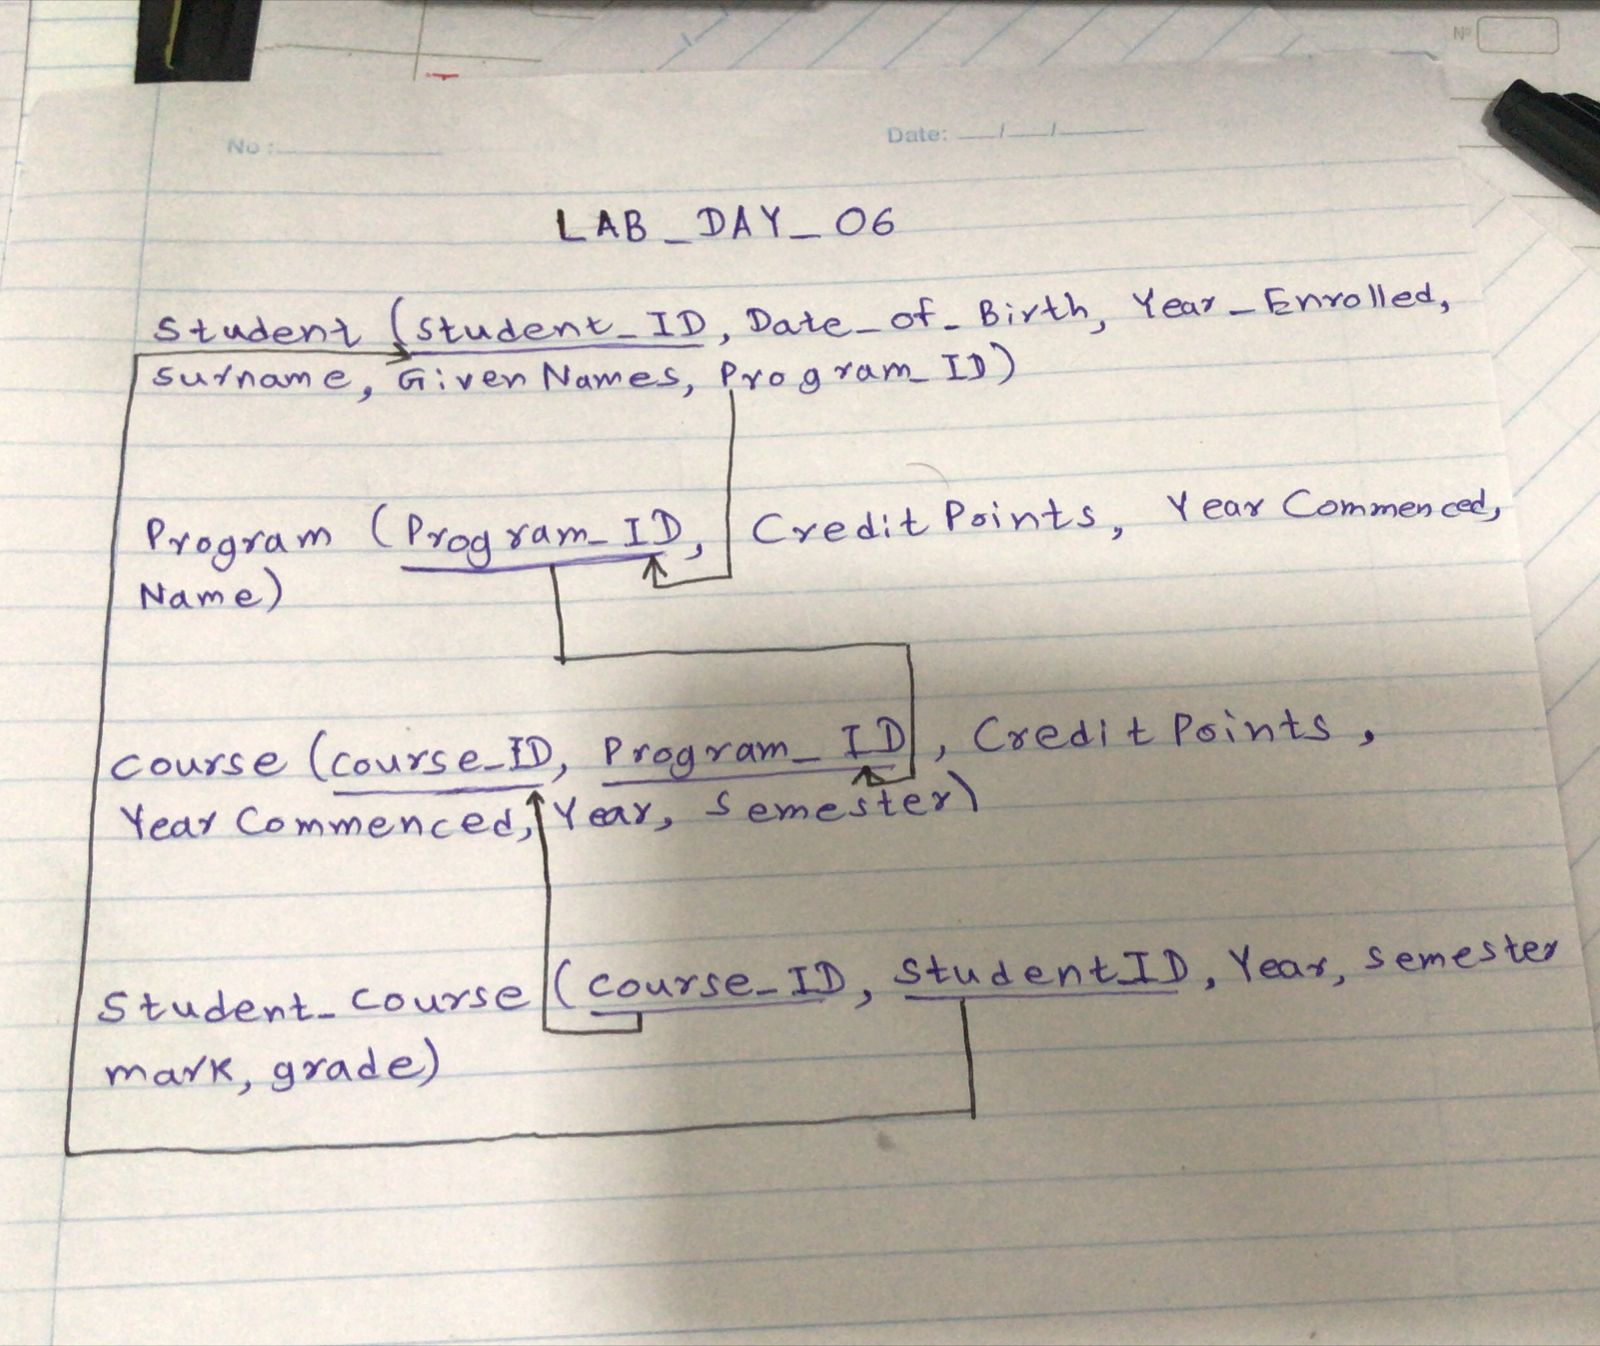 Nº
No:
Date: __/__/__
LAB_DAY_06
Student (Student_ID, Date_of_Birth, Year_Enrolled,
Surname, Given Names, Program_ID)
Program (Program_ID, Credit Points, Year Commenced,
Name)
Course (Course_ID, Program_ID, Credit Points,
Year Commenced, Year, Semester)
Student_Course (Course_ID, Student_ID, Year, Semester
mark, grade)